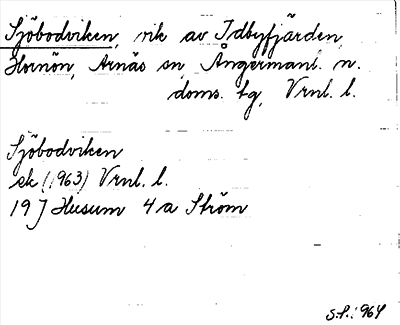 Sjöbodviken, vik av Idbyfjärden,
Hornön, Arnäs sn, Ångermanl. n.
doms. tg, Vrnl. l.
Sjöbodviken
ek (1963) Vrnl. l.
19J Husum 4a Ström
S.P.: 964